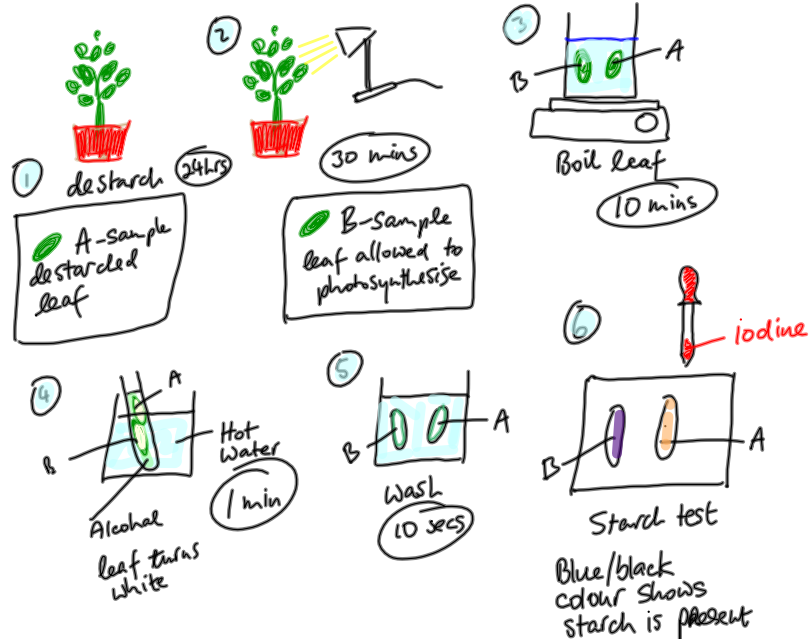 1 destarch 24hrs
A-sample
destarched
leaf
2
30 mins
B-sample
leaf allowed to
photosynthesise
3
B A
Boil leaf
10 mins
4
A
B
Hot
water
1 min
Alcohol
leaf turns
white
5
B A
Wash
10 secs
6
iodine
B A
Starch test
Blue/black
colour shows
starch is present